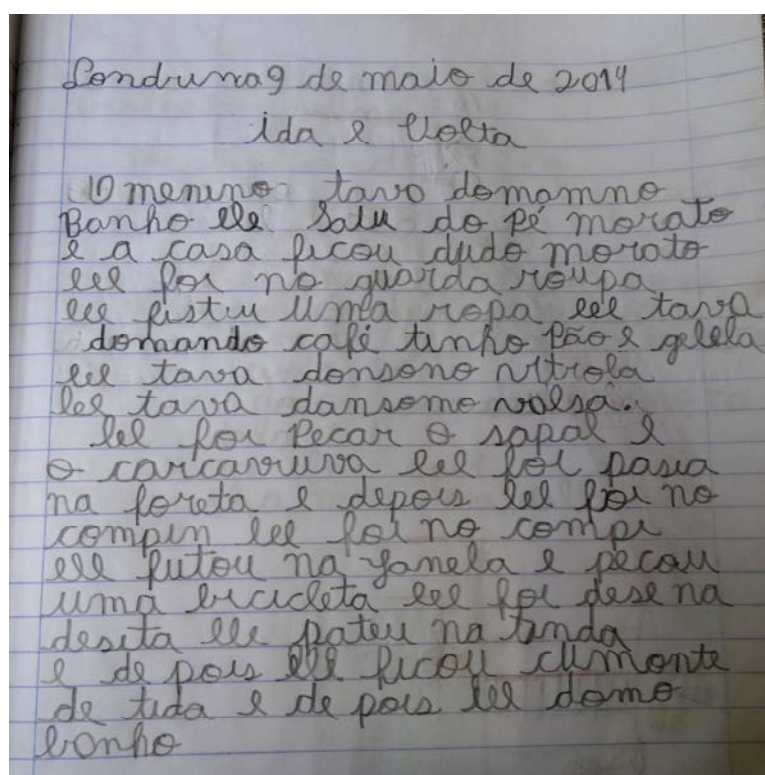 Londrina 9 de maio de 2014
ida e Volta
O menino tavo domamno
Banho ele saiu do pé morato
e a casa ficou dudo morato
ele foi no guarda roupa
ele fistiu uma ropa ele tava
domando café tinho pão e gelela
ele tava donsono vitrola
ele tava dansomo valsa.
ele foi Pecar o sapal e
o carcavruva ele foi pasia
na foreta e depois ele foi no
compin ele foi no compi
ele futou na ganela e pecou
uma bicicleta ele foi dese na
desita ele pateu na tinda
e de pois ele ficou cumonte
de tida e de pois ele domo
bonho